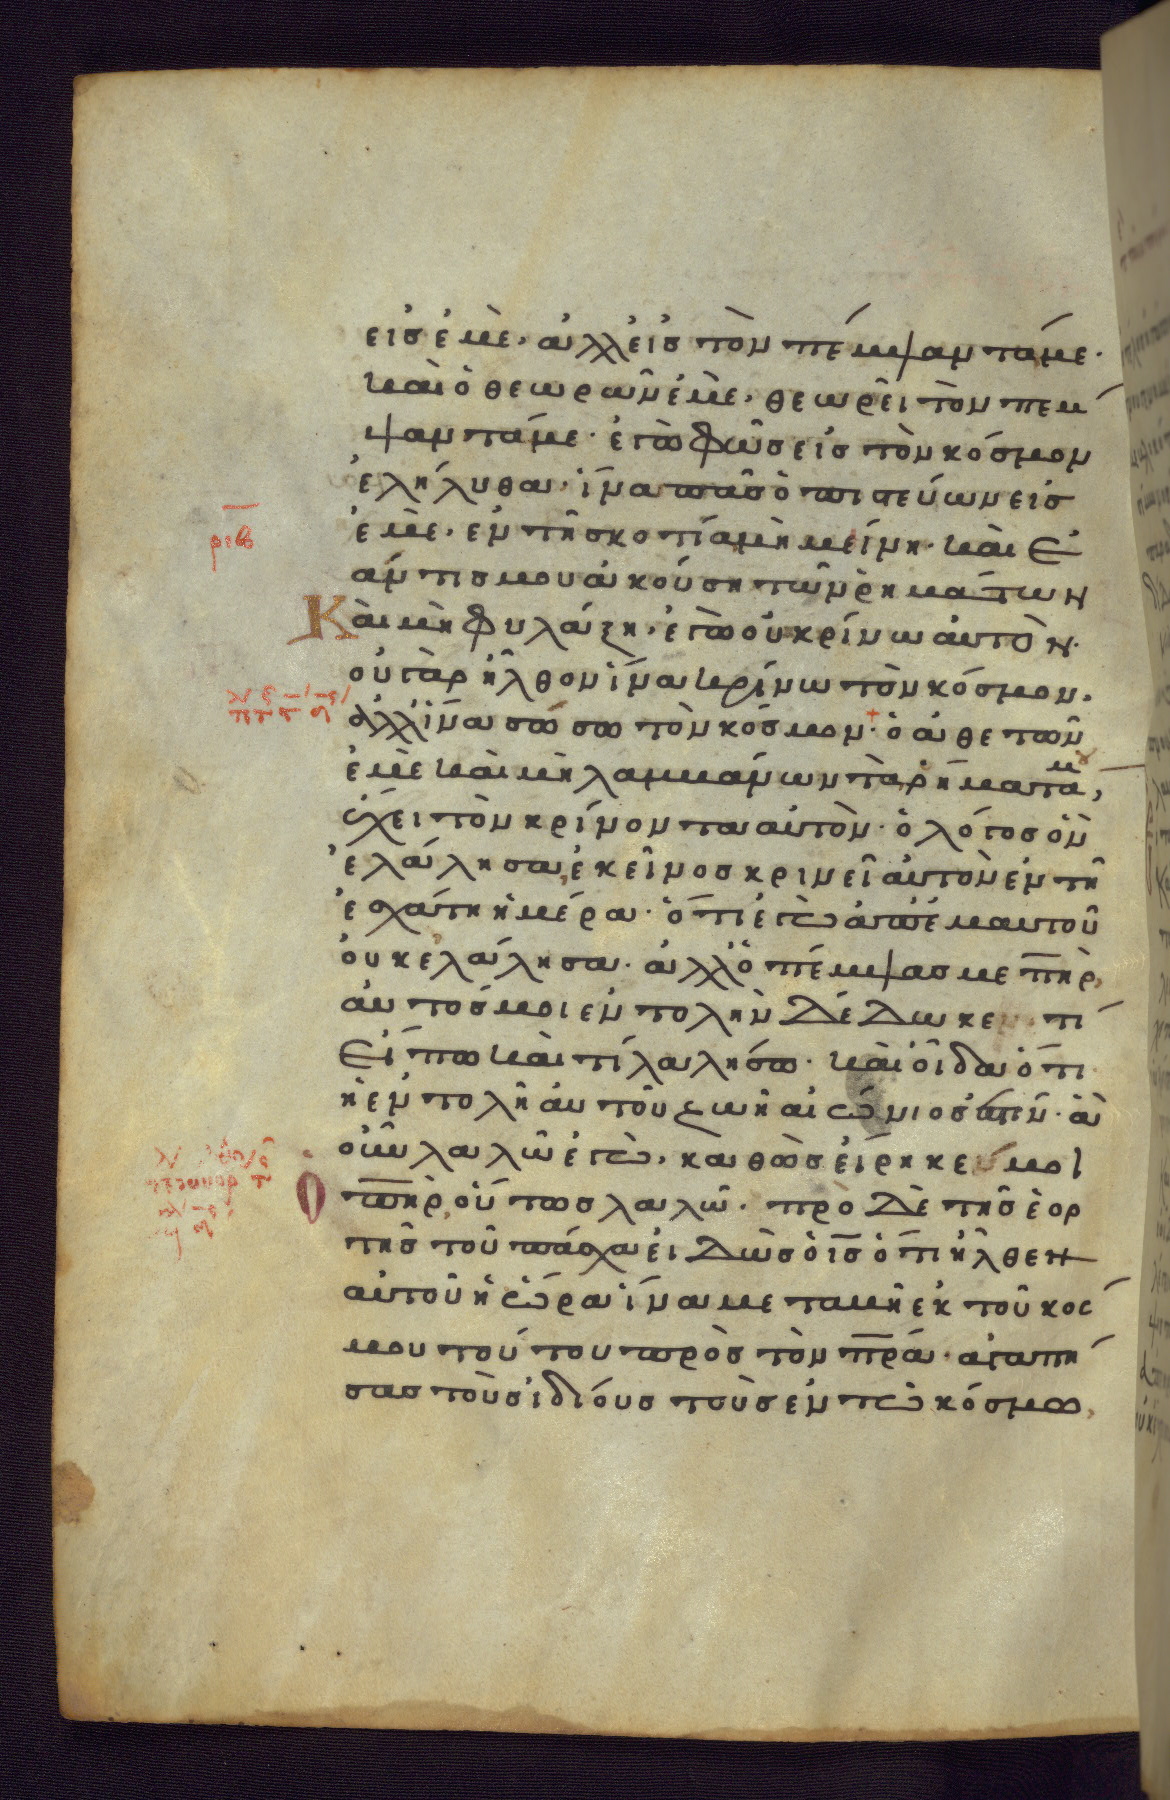 εἰσ ἐμὲ· ἀλλ εἰσ τὸν πέμψαντά με·
καὶ ὁ θεωρῶν ἐμὲ· θεωρεῖ τὸν πεμ
ψαντά με· ἐγὼ φῶσ εἰσ τὸν κόσμον
ἐλήλυθα· ἵνα πᾶσ ὁ πιστεύων εἰσ
ριβ
ἐμὲ· ἐν τῆ σκοτία μὴ μείνη· καὶ ἐ
άν τισ μου ἀκούση τῶν ρημάτων
Καὶ μὴ φυλάξη· ἐγὼ οὐ κρίνω αὐτὸν·
οὐ γὰρ ἦλθον ἵνα κρίνω τὸν κόσμον·
ἀλλ ἵνα σώσω τὸν κόσμον· ὁ ἀθετῶν
ἐμὲ καὶ μὴ λαμμάνων τὰ ρήματά μου,
ἔχει τὸν κρίνοντα αὐτὸν· ὁ λόγοσ ὃν
ἐλάλησα, ἐκεῖνοσ κρινεῖ αὐτὸν ἐν τῆ
ἐσχάτη ἡμέρα· ὅτι ἐγὼ ἀπ ἐμαυτοῦ
οὐκ ἐλάλησα· ἀλλ ὁ πέμψασ με πηρ,
αὐτόσ μοι ἐντολὴν δέδωκε τί
εἴπω καὶ τί λαλήσω· καὶ οἶδα ὅτι
ἡ ἐντολὴ αὐτοῦ ζωὴ αἰώνιοσ ἐστιν· ἃ
οὖν λαλῶ ἐγὼ, καθὼσ εἴρηκε μοι
Ο πηρ, οὕτωσ λαλῶ· πρὸ δὲ τῆσ ἑορ
τῆσ τοῦ πάσχα εἰδὼσ ὁ ισ ὅτι ἦλθεν
αὐτοῦ ἡ ὥρα ἵνα μεταμῆ ἐκ τοῦ κοσ
μου τούτου πρὸσ τὸν πρα· ἀγαπή
σασ τοὺσ ἰδίουσ τοὺσ ἐν τῶ κόσμω,